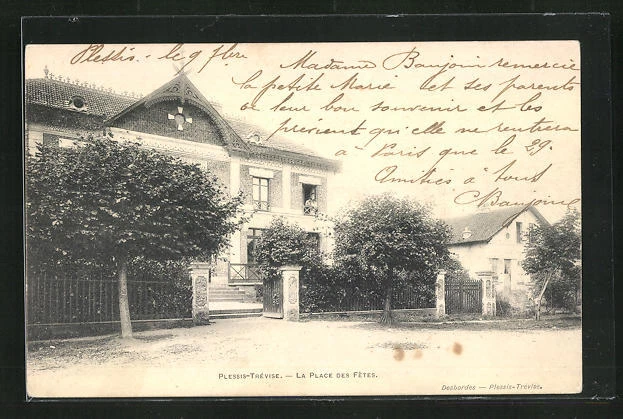 Plessis. le 9 7bre
Madame Baujoin remercie
la petite Marie et ses parents
de leur bon souvenir et les
prévient qu'elle ne rentrera
à Paris que le 29.
Amitiés à tous
Baujoin
PLESSIS-TRÉVISE. — LA PLACE DES FÊTES.
Desbordes — Plessis-Trévise.